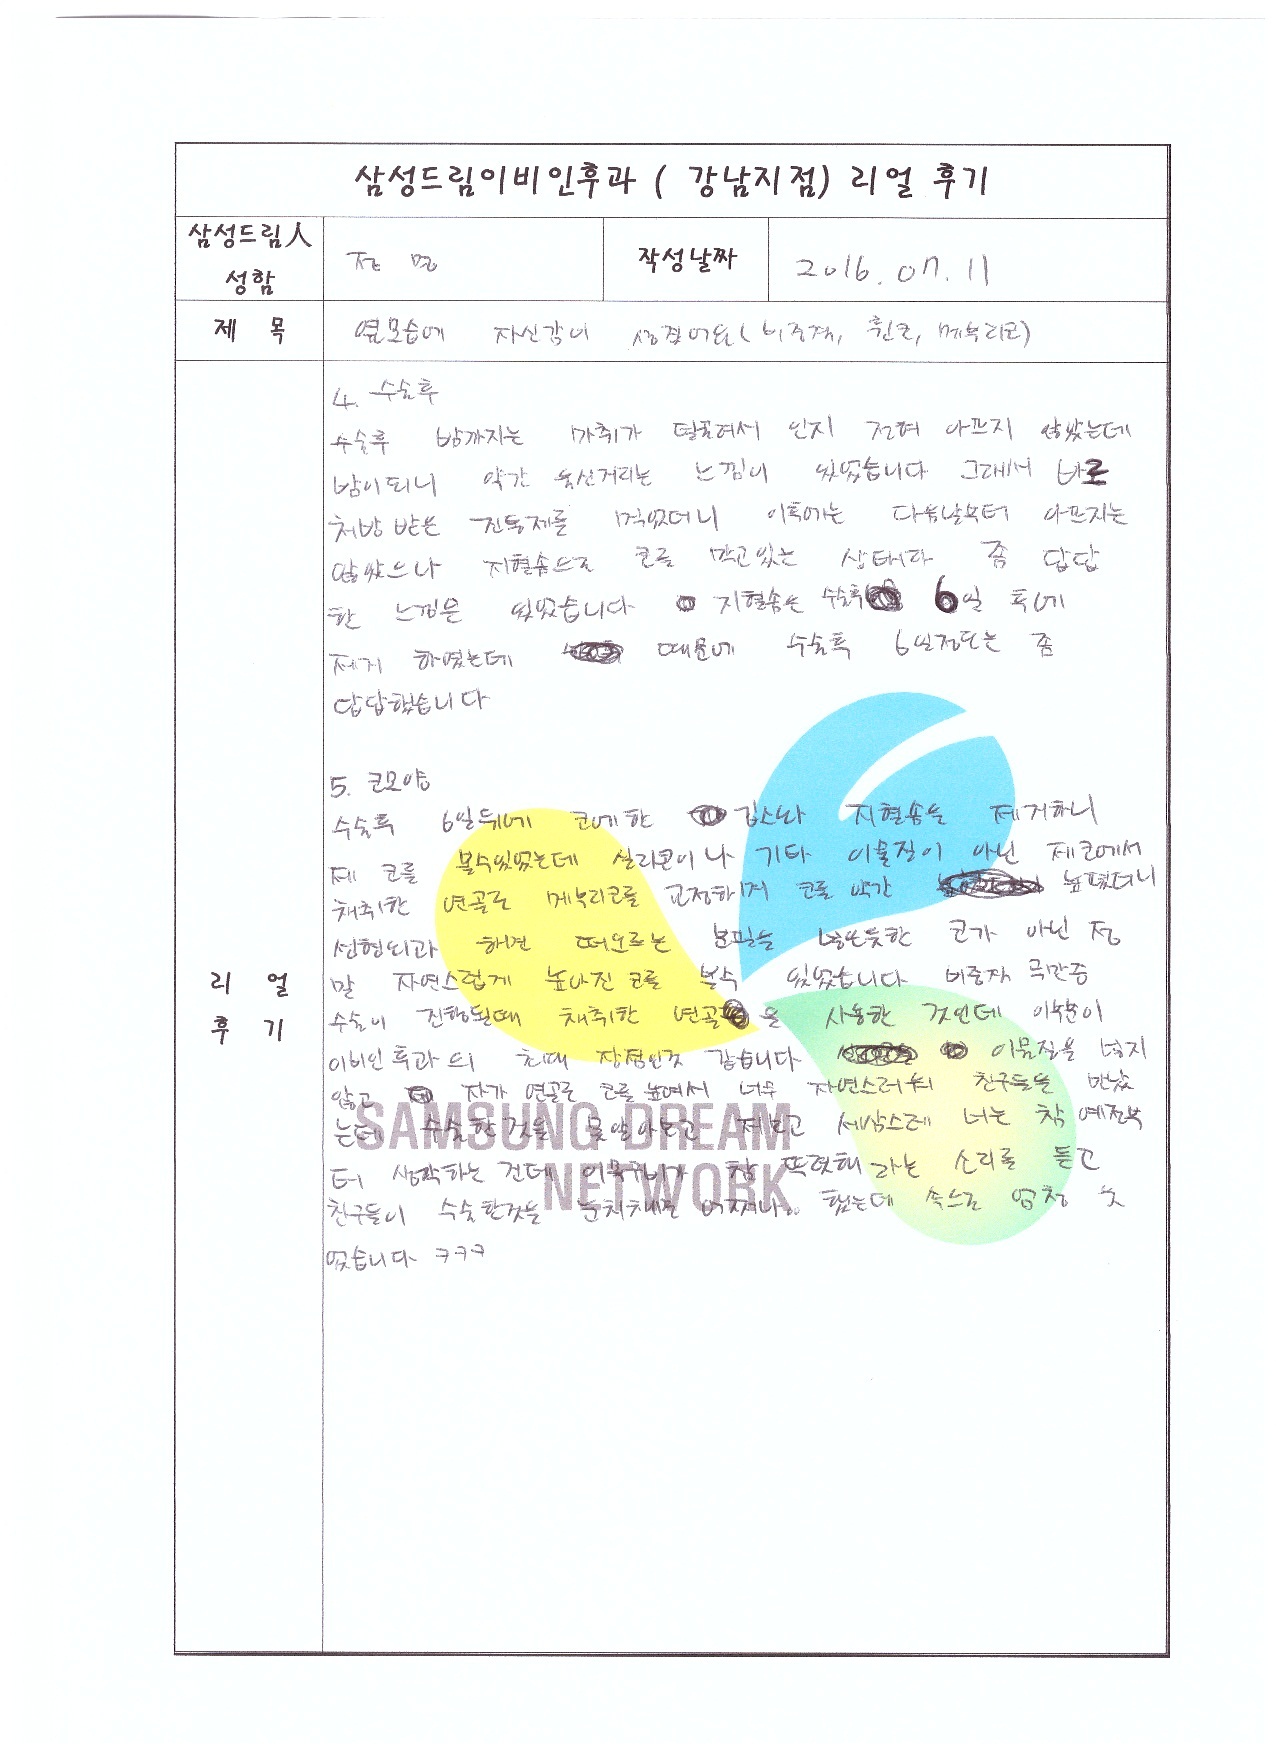 삼성드림이비인후과 ( 강남지점) 리얼 후기
삼성드림人
성함
작성날짜
2016. 07. 11
제 목
옆모습에 자신감이 생겼어요( 비중격, 휜코, 매부리코)
4. 수술후
수술후 밤까지는 마취가 덜풀려서 인지 전혀 아프지 않았는데
밤이되니 약간 욱신거리는 느낌이 있었습니다 그래서 바로
처방 받은 진통제를 먹었더니 이후에는 다음날부터 아프지는
않았으나 지혈솜으로 코를 막고있는 상태라 좀 답답
한 느낌은 있었습니다 지혈솜는 수술후 6일 후에
제거 하였는데 때문에 수술후 6일정도는 좀
답답했습니다
5. 코모양
수술후 6일뒤에 코에한 깁스와 지혈솜을 제거하니
제 코를 볼수있었는데 실리콘이나 기타 이물질이 아닌 제코에서
채취한 연골로 메부리코를 교정하며 코를 약간 높혔더니
성형외과 하면 떠오르는 분필을 넣은듯한 코가 아닌 정
말 자연스럽게 높아진 코를 볼수 있었습니다 비중격 만곡증
수술이 진행될때 채취한 연골을 사용한 것인데 이부분이
이비인후과의 최대 장점인것 같습니다 이물질을 넣지
않고 자가 연골로 코를 높여서 너무 자연스러워 친구들을 만났
는데 수술한것을 못알아보고 저보고 세삼스레 너는 참 예전부
터 생각하는 건데 이목구비가 참 뚜렷해 라는 소리를 듣고
친구들이 수술한것을 눈치채면 어쩌나.. 했는데 속으로 엄청 웃
었습니다 ㅋㅋㅋ
리 얼
후 기
SAMSUNG DREAM
NETWORK